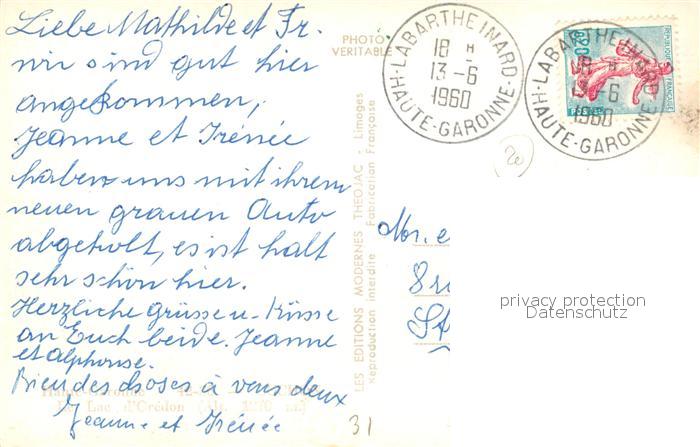 Liebe Mathilde et Fr.
wir sind gut hier
angekommen,
Jeanne et Irénée
haben uns mit ihrem
neuen grauen Auto
abgeholt, es ist halt
sehr schön hier.
Herzliche grüsse u. Küsse
an Euch beide. Jeanne
et alphonse.
Bien des choses à vous deux
Jeanne et Irénée
Le Lac d'Orédon
31
PHOTO
VERITABLE
LES EDITIONS MODERNES THEOJAC - Limoges
Reproduction interdite Fabrication Française
LABARTHE INARD
18 H
13-6
1960
HTE-GARONNE
LABARTHE INARD
18 H
13-6
1960
HAUTE-GARONNE
REPUBLIQUE FRANÇAISE
0,20
20
Mr. e
privacy protection
Datenschutz